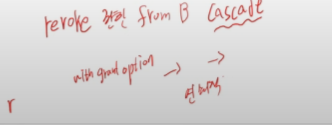 revoke 권한 from B cascade
with grant option → →
연쇄적
r